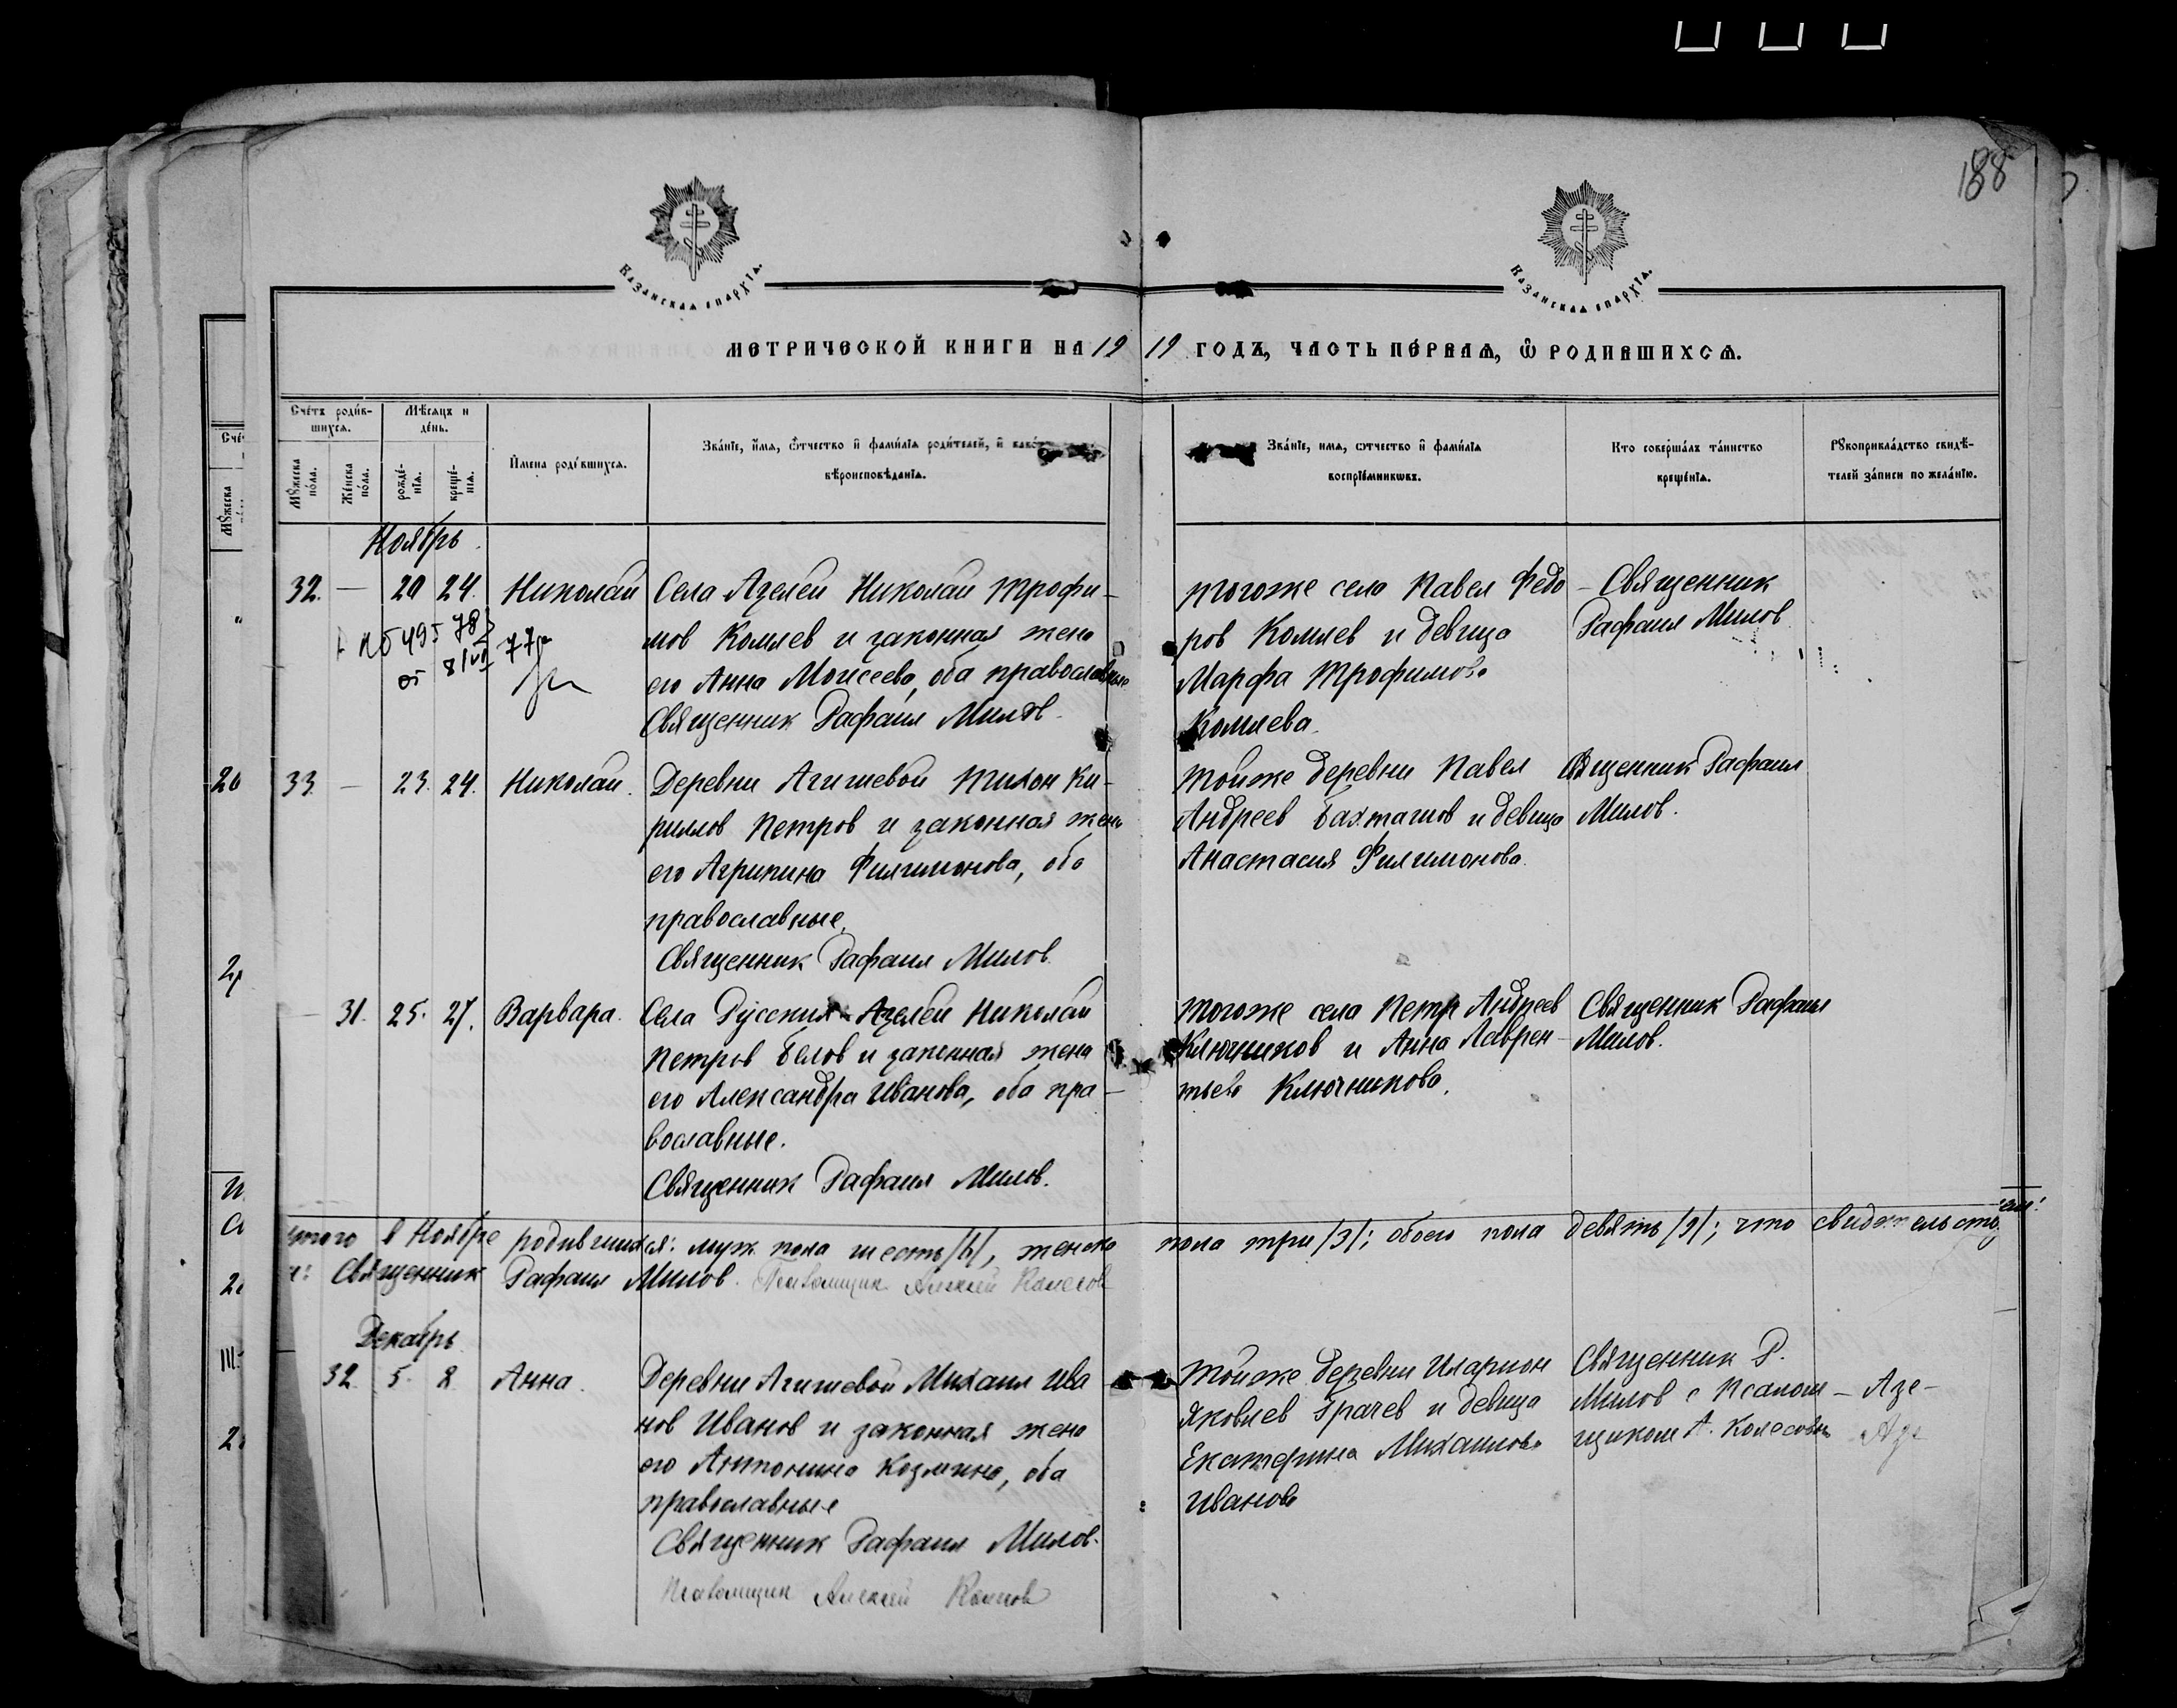 188
Казанская епархїа.
Казанская епархїа.
МЕТРИЧЕСКОЙ КНИГИ НА 1919 ГОДЪ, ЧАСТЬ ПЕ́РВАѦ, Ѡ РОДИВШИХСѦ.
Сче́тъ роди́вшихсѧ.
Мѣ́сѧцъ и де́нь.
Мꙋ́жеска по́ла.
Же́нска по́ла.
рожде́нїѧ.
креще́нїѧ.
И́мена роди́вшихсѧ.
Зва́нїе, и́мѧ, ѻ҆́тчество и҆ фами́лїѧ роди́телей, и҆
вѣроисповѣ́данїѧ.
Зва́нїе, имѧ, ѻтчество и҆ фами́лїѧ
воспрїе́мникѡвъ.
Кто соверша́лъ та́инство
креще́нїѧ.
Рꙋкоприкла́дство свидѣ́-
телей за́писи по жела́нїю.
Ноябрь
32. — 20 24. Николай Села Азелей Николай Трофи-
мов Комлев и законная жена
его Анна Моисеева, оба православные
Священник Рафаил Милов.
495 78
от 8/VII 77
Тогоже села Павел Федо-
ров Комлев и девица
Марфа Трофимова
Комлева.
Священник
Рафаил Милов
33. — 23. 24. Николай. Деревни Агишевой Тихон Ки-
риллов Петров и законная жена
его Агрипина Филимонова, оба
православные.
Священник Рафаил Милов
Тойже деревни Павел
Андреев Бахташов и девица
Анастасия Филимонова.
Священник Рафаил
Милов.
— 31. 25. 27. Варвара. Села Русских Азелей Николай
Петров Белов и законная жена
его Александра Иванова, оба пра-
вославные.
Священник Рафаил Милов.
Тогоже села Петр Андреев
Ключников и Анна Лаврен-
тьева Ключникова.
Священник Рафаил
Милов.
Итого в Ноябре родившихся: муж. пола шесть /6/, женско пола три /3/; обоего пола девять /9/; что
Священник Рафаил Милов. Псаломщик Алексей Колесов
Декабрь
32 5. 8. Анна. Деревни Агишевой Михаил Ива
нов Иванов и законная жена
его Антонина Козмина, оба
православные
Священник Рафаил Милов.
Псаломщик Алексей Колесов
Тойже деревни Иларион
Яковлев Грачев и девица
Екатерина Михаилова
Иванова
Священник Р.
Милов с псалом-
щиком А. Колесовым
Азе-